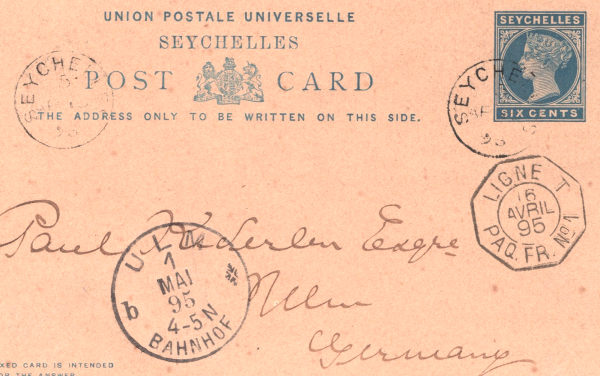 UNION POSTALE UNIVERSELLE
SEYCHELLES
POST CARD
THE ADDRESS ONLY TO BE WRITTEN ON THIS SIDE.
SEYCHELLES
SIX CENTS
SEYCHE
95
SEYCHE
95
LIGNE T
16
AVRIL
95
PAQ. FR. No 1
Paul Esqre
Ulm
Germany
ULM
1
MAI
95
4-5 N
b
BAHNHOF
XED CARD IS INTENDED
OR THE ANSWER